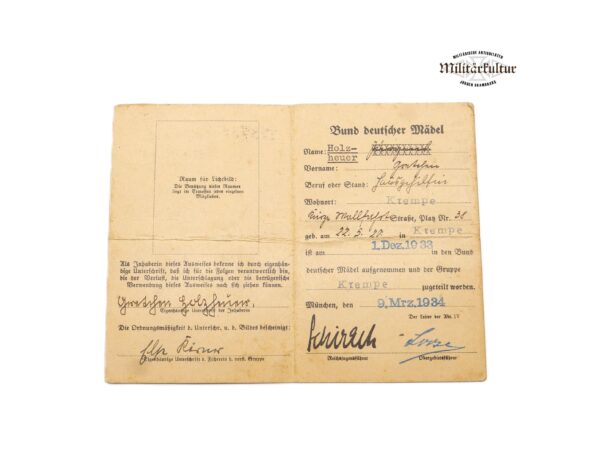 MILITÄRISCHE ANTIQUITÄTEN
Militärkultur
Raum für Lichtbild:
Die Benutzung dieses Raumes
liegt im Ermessen jedes einzelnen
Mitgliedes.
Als Inhaberin dieses Ausweises bekenne ich durch eigenhän-
dige Unterschrift, daß ich für die Folgen verantwortlich bin,
die der Verlust, die Unterschlagung oder die betrügerische
Verwendung dieses Ausweises nach sich ziehen können.
Gretchen Holzheuer.
Eigenhändige Unterschrift der Inhaberin
Die Ordnungsmäßigkeit d. Unterschr. u. d. Bildes bescheinigt:
Else Körner
Eigenhändige Unterschrift d. Führerin d. Gruppe
Bund deutscher Mädel
Name: Holz-
heuer
Vorname: Gretchen
Beruf oder Stand: Hausgehilfin
Wohnort: Krempe
Straße, Platz Nr. 38
geb. am 22.5.20 in Krempe
ist am 1. Dez. 1933 in den Bund
deutscher Mädel aufgenommen und der Gruppe
Krempe zugeteilt worden.
München, den 9. Mrz. 1934
Der Leiter der Abt. IV
Schirach
Reichsjugendführer Obergebietsführer